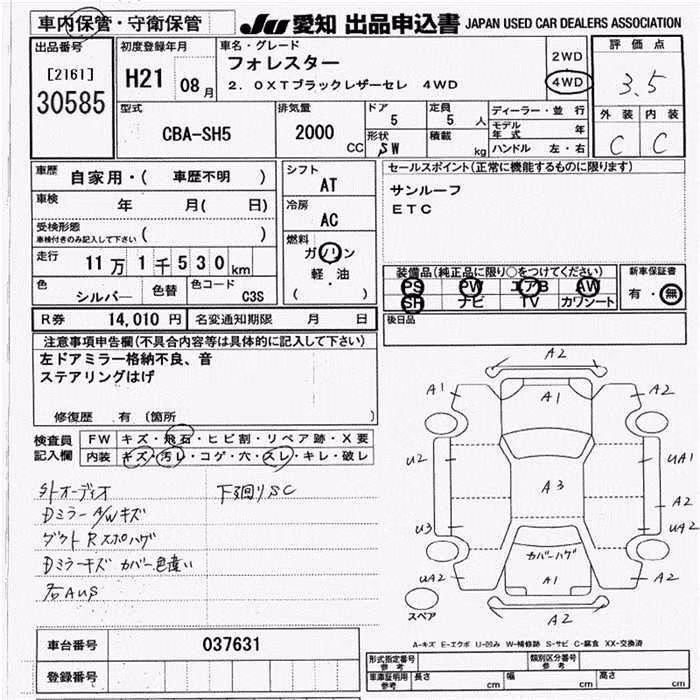 車内保管・守衛保管
JU 愛知 出品申込書 JAPAN USED CAR DEALERS ASSOCIATION
出品番号
[2161]
30585
初度登録年月
H21 08月
車名・グレード
フォレスター
2.0XTブラックレザーセレ 4WD
2WD
4WD
評価点
3.5
外装 内装
C C
型式
CBA-SH5
排気量
2000 CC
ドア 5
定員 5人
形状 SW
積載 kg
ディーラー・並行
モデル年式 年
ハンドル 左・右
車歴 自家用・( 車歴不明 )
車検 年 月( 日)
受検形態 ( )
車検付きのみ記入して下さい
走行 11万1千530km
色 シルバー 色替 色コード C3S
シフト
AT
冷房
AC
燃料
ガソリン
軽・油
( )
セールスポイント(正常に機能するものに限ります)
サンルーフ
ETC
装備品(純正品に限り○をつけてください)
PS PW エアB AW
SR ナビ TV カワシート
新車保証書
有・無
R券 14,010円 名変通知期限 月 日
後日品
注意事項申告欄(不具合内容等は具体的に記入して下さい)
左ドアミラー格納不良、音
ステアリングはげ
修復歴 有 (箇所
検査員記入欄
FW キズ・飛石・ヒビ割・リペア跡・X要
内装 キズ・汚レ・コゲ・穴・スレ・キレ・破レ
外オーディオ
下廻りSC
Dミラー A/Wキズ
ダクト Rスポハゲ
Dミラーキズ カバー色違い
A2
A1 A1 A2
U2 UA1
A3 A2
U3 UA2
カバーハゲ
UA2 A1 A2
スペア
A2
A-キズ E-エクボ U-凹み W-補修跡 S-サビ C-腐食 XX-交換済
車台番号 037631
登録番号
形式指定番号 参考
類別区分番号 参考
車庫証明用 参考 長さ cm 幅 cm 高さ cm